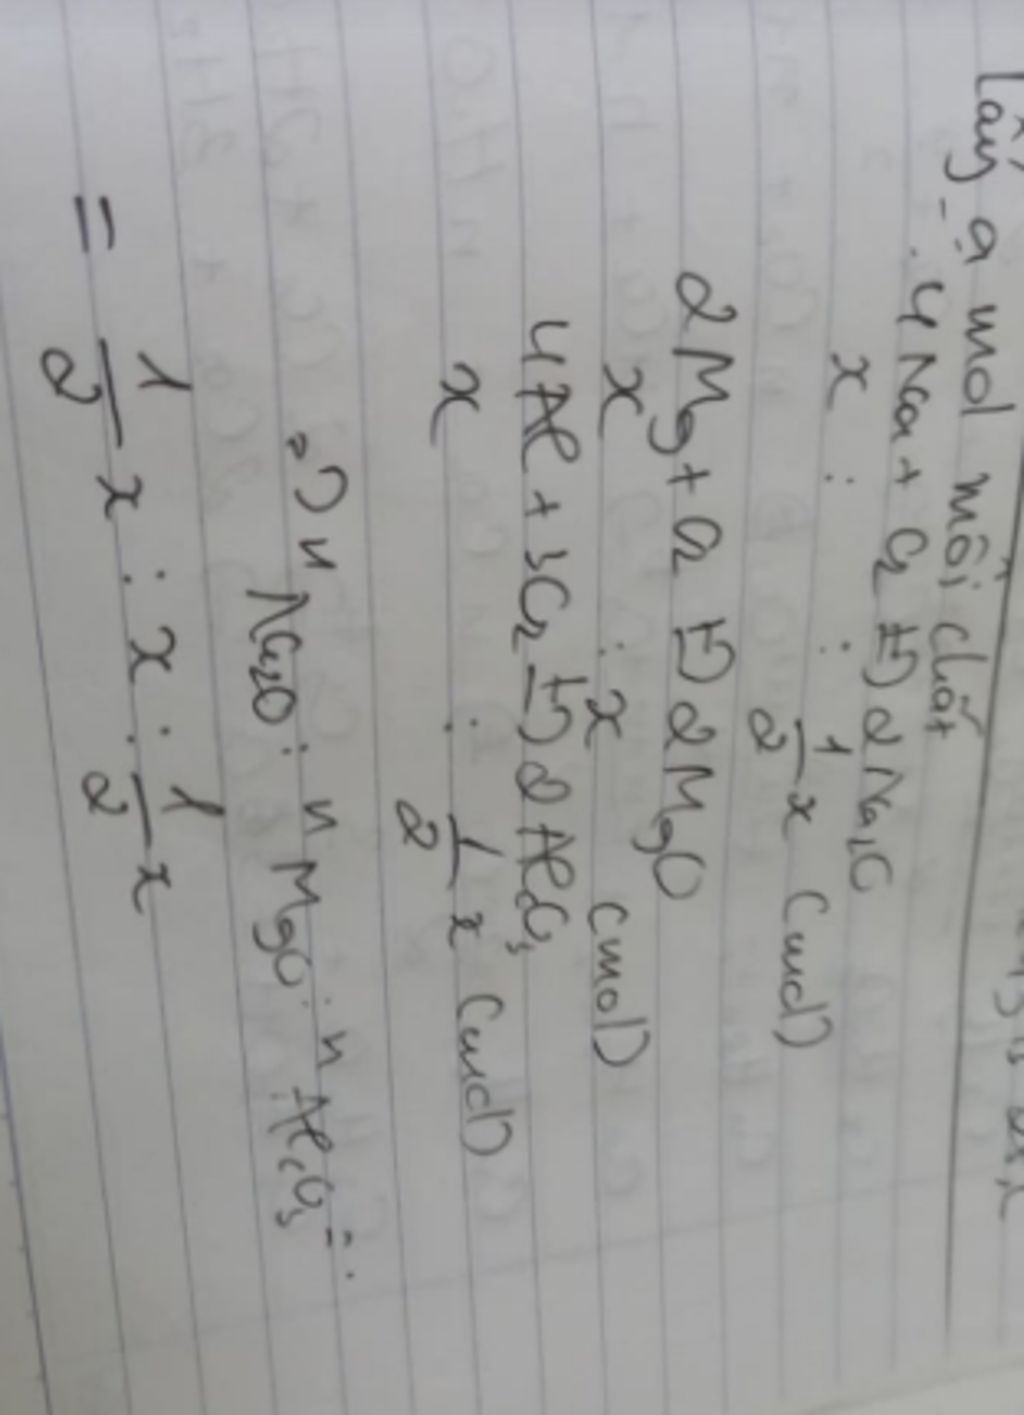 Lấy a mol mỗi chất
4Na + O2 t°) 2Na2O
x : : 1/2 x (mol)
2Mg + O2 t°) 2MgO
x : x (mol)
4Al + 3O2 t°) 2Al2O3
x : 1/2 x (mol)
=) n Na2O : n MgO : n Al2O3 =
= 1/2 x : x : 1/2 x